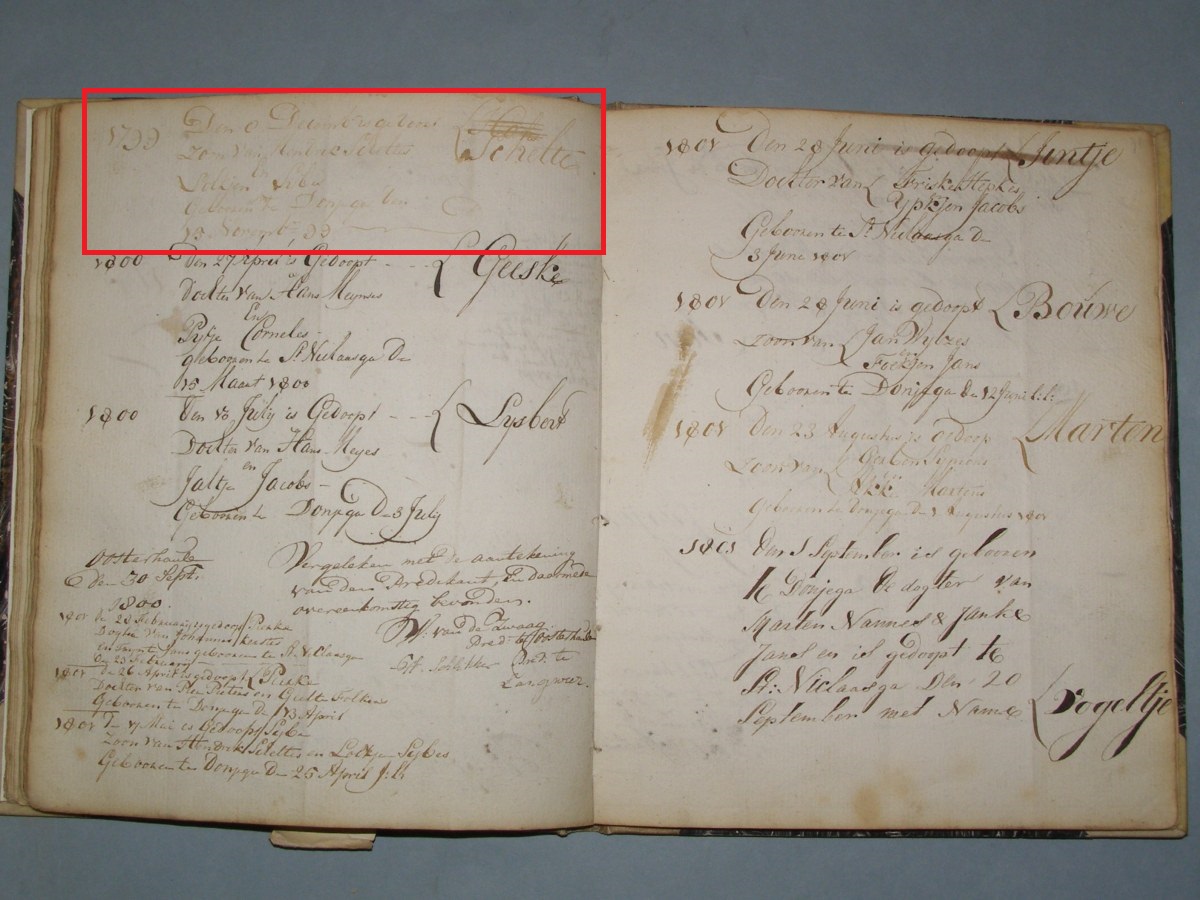 1799
Zoon van Hendrik Scheltes
Schelte
Geboren te Donjega den
15 Novemb 99
1800 Den 27 April is Gedoopt Geeske
Dochter van Hans Meynses
En
Pytje Cornelis
geboren te St. Niclaasga De
15 Maart 1800
1800 den 13 July is Gedoopt Lysbert
Dochter van Hans Meyes
en
Jaltje Jacobs
Gebooren te Donjega D 3 July
Oosterhaule
den 30 Sept.
1800.
Vergeleken met de aantekening
van den Predikant, en daarmede
overeenkomstig bevonden.
van der Zwaag
Pred. te Oosterhaule
Pred. te
Langweer.
1801 de 28 Februarij is gedoopt
Dogter van Johannes
geboren te St. Niclaasga
den 23 Februarij
1801 de 26 April is gedoopt
Dochter van Pieters en Geeltie Folkerts
Gebooren te Donjega D 13 April
1801 De 17 Mei is Gedoopt Sijbe
Zoon van Hendrik Scheltes en Loltjen Sijbes
Gebooren te Donjega D 25 April
1801 Den 28 Juni is gedoopt Jintje
Dochter van Friske Hopkes
Ypkjen Jacobs
Gebooren te St. Niclaasga de
3 Juni 1801
1801 Den 28 Juni is gedoopt Bouwe
Zoon van Jan Wybzes
en
Foekjen Jans
Gebooren te Donjega de 12 Juni
1801 Den 23 Augustus is gedoop Marten
Zoon van Gerben Symons
Martens
Gebooren te Donjega de Augustus 1801
1801 den 1 September is geboren
te Donjega de dogter van
Marten Nannes & Janke
Janes en is gedoopt te
St: Niclaasga Den 20
September met Name Vogeltje